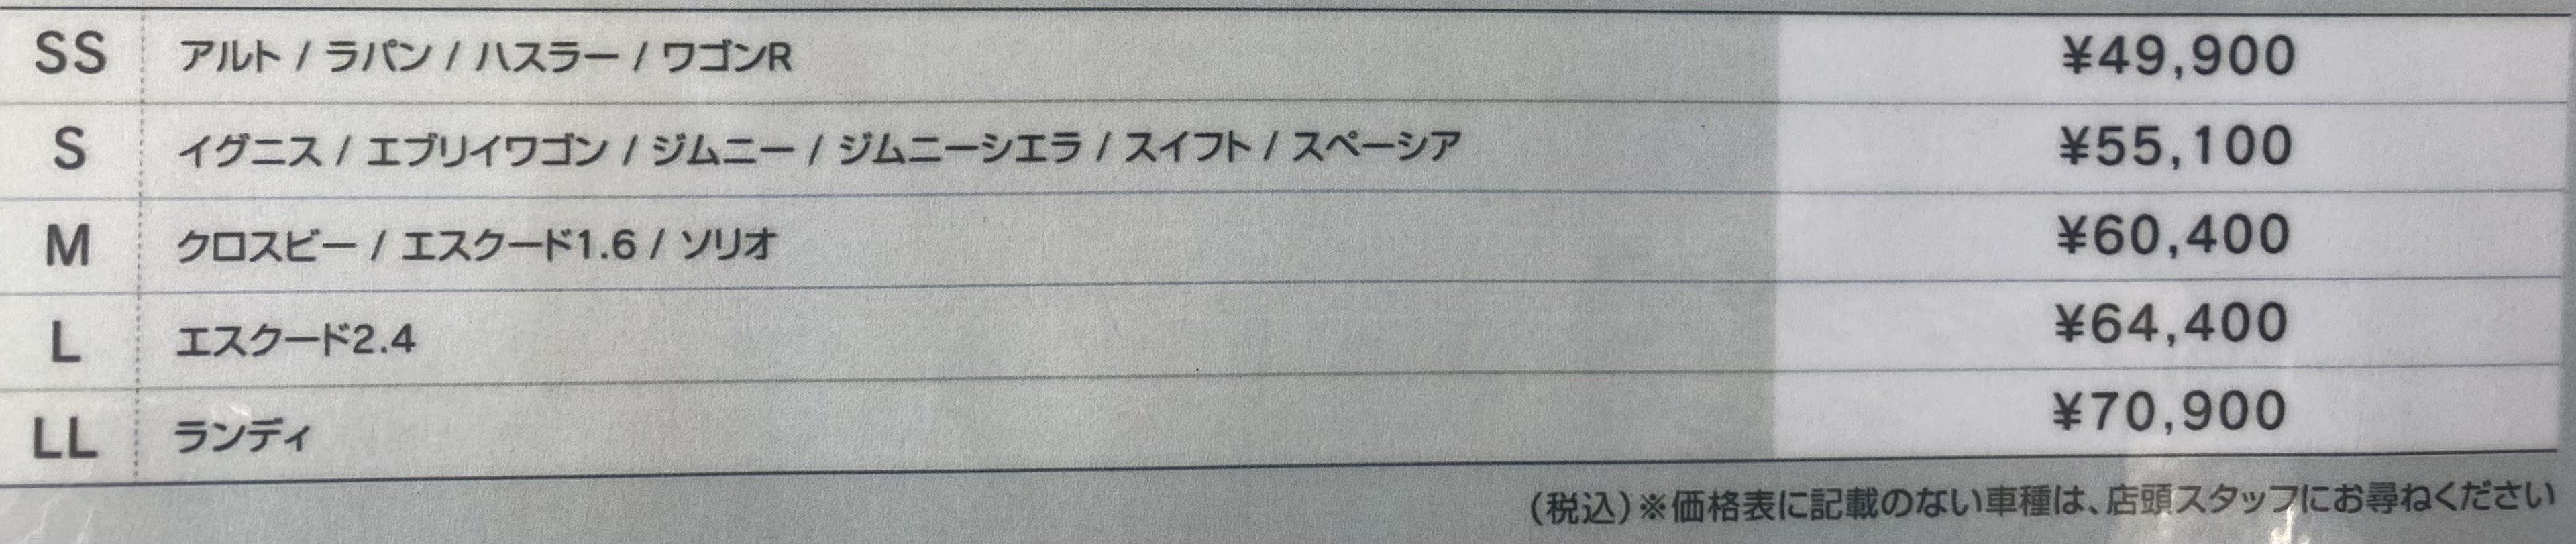 SS アルト / ラパン / ハスラー / ワゴンR ¥49,900
S イグニス / エブリイワゴン / ジムニー / ジムニーシエラ / スイフト / スペーシア ¥55,100
M クロスビー / エスクード1.6 / ソリオ ¥60,400
L エスクード2.4 ¥64,400
LL ランディ ¥70,900
(税込)※価格表に記載のない車種は、店頭スタッフにお尋ねください